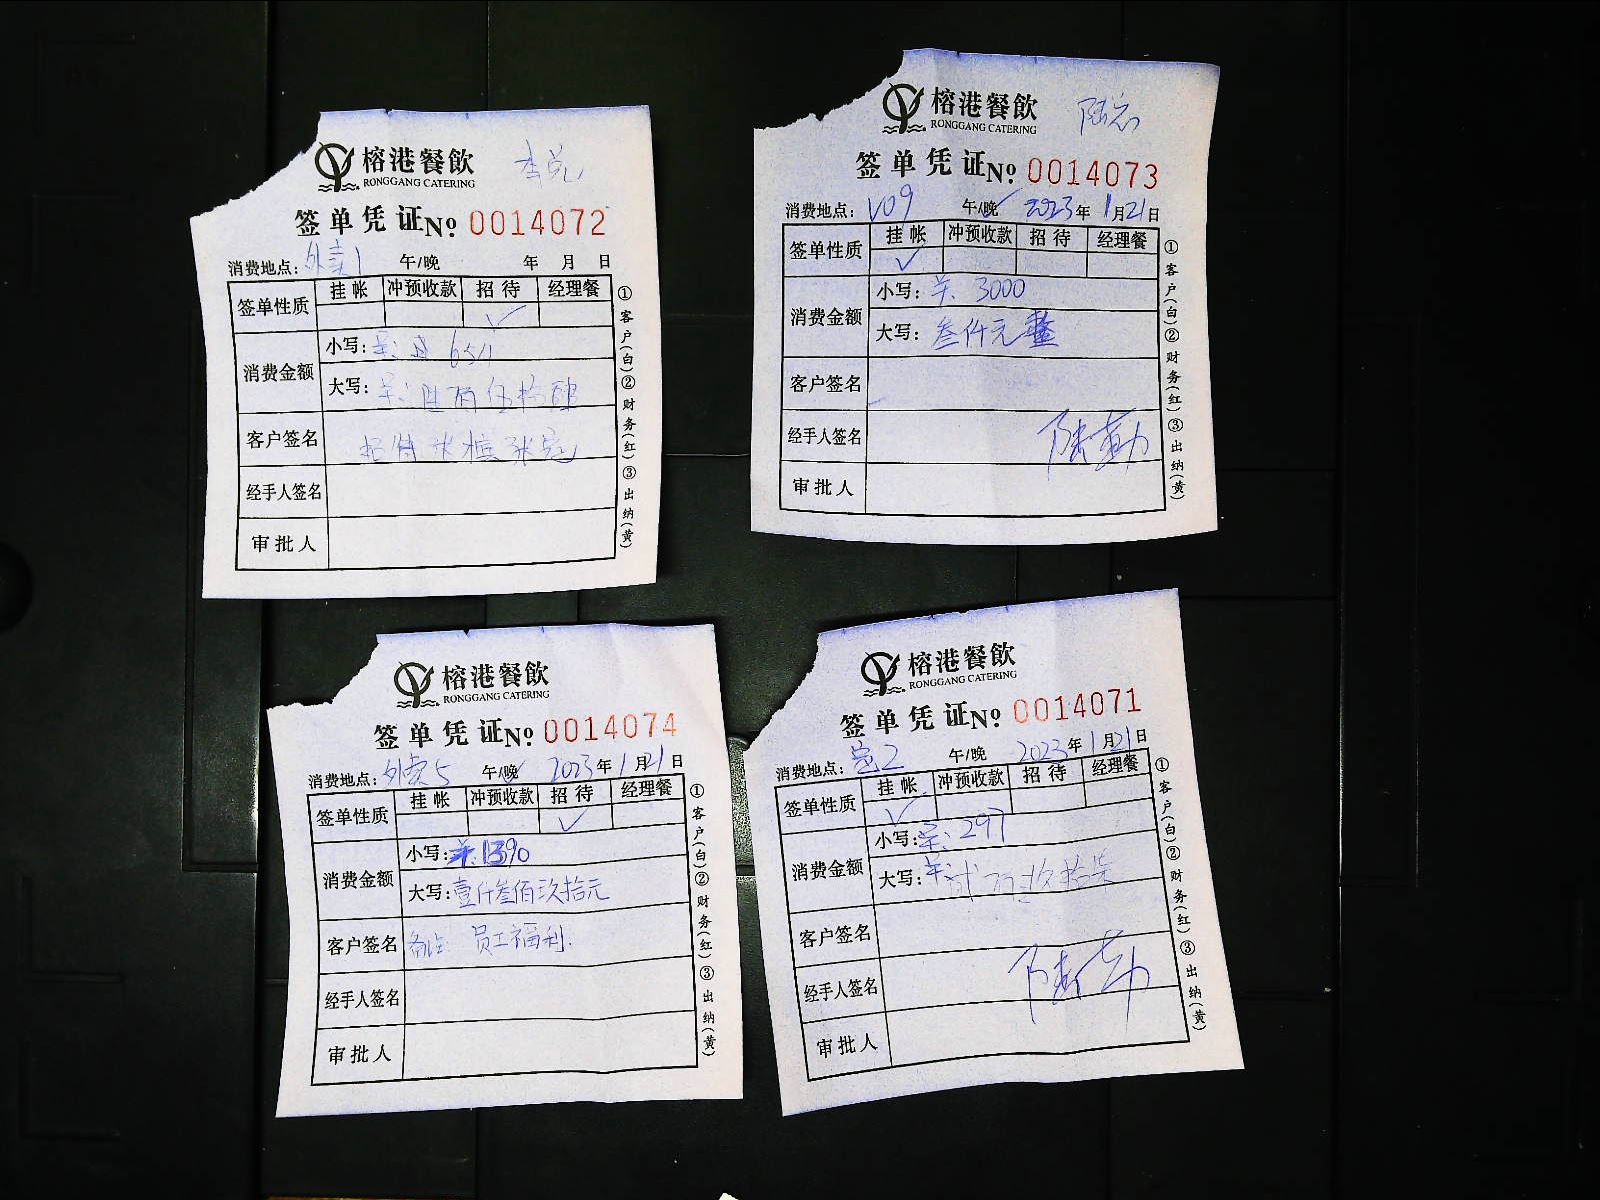 榕港餐飲
RONGGANG CATERING
签单凭证 No 0014072
消费地点: 外卖1 午/晚 年 月 日
签单性质 挂帐 冲预收款 招待 经理餐
✓
消费金额 小写:
大写:
客户签名 招待
经手人签名
审批人
①客户(白)②财务(红)③出纳(黄)
榕港餐飲
RONGGANG CATERING
签单凭证 No 0014073
消费地点: V09 午/晚 ✓ 2023年 1月21日
签单性质 挂帐 冲预收款 招待 经理餐
✓
消费金额 小写: 3000
大写: 叁仟元整
客户签名
经手人签名 陆勤
审批人
①客户(白)②财务(红)③出纳(黄)
榕港餐飲
RONGGANG CATERING
签单凭证 No 0014074
消费地点: 外卖5 午/晚 ✓ 2023年 1月21日
签单性质 挂帐 冲预收款 招待 经理餐
✓
消费金额 小写: 1390
大写: 壹仟叁佰玖拾元
客户签名 备注: 员工福利.
经手人签名
审批人
①客户(白)②财务(红)③出纳(黄)
榕港餐飲
RONGGANG CATERING
签单凭证 No 0014071
消费地点: 2 午/晚 2023年 1月21日
签单性质 挂帐 冲预收款 招待 经理餐
✓
消费金额 小写: 297
大写: 贰百玖拾柒
客户签名
经手人签名 陆勤
审批人
①客户(白)②财务(红)③出纳(黄)